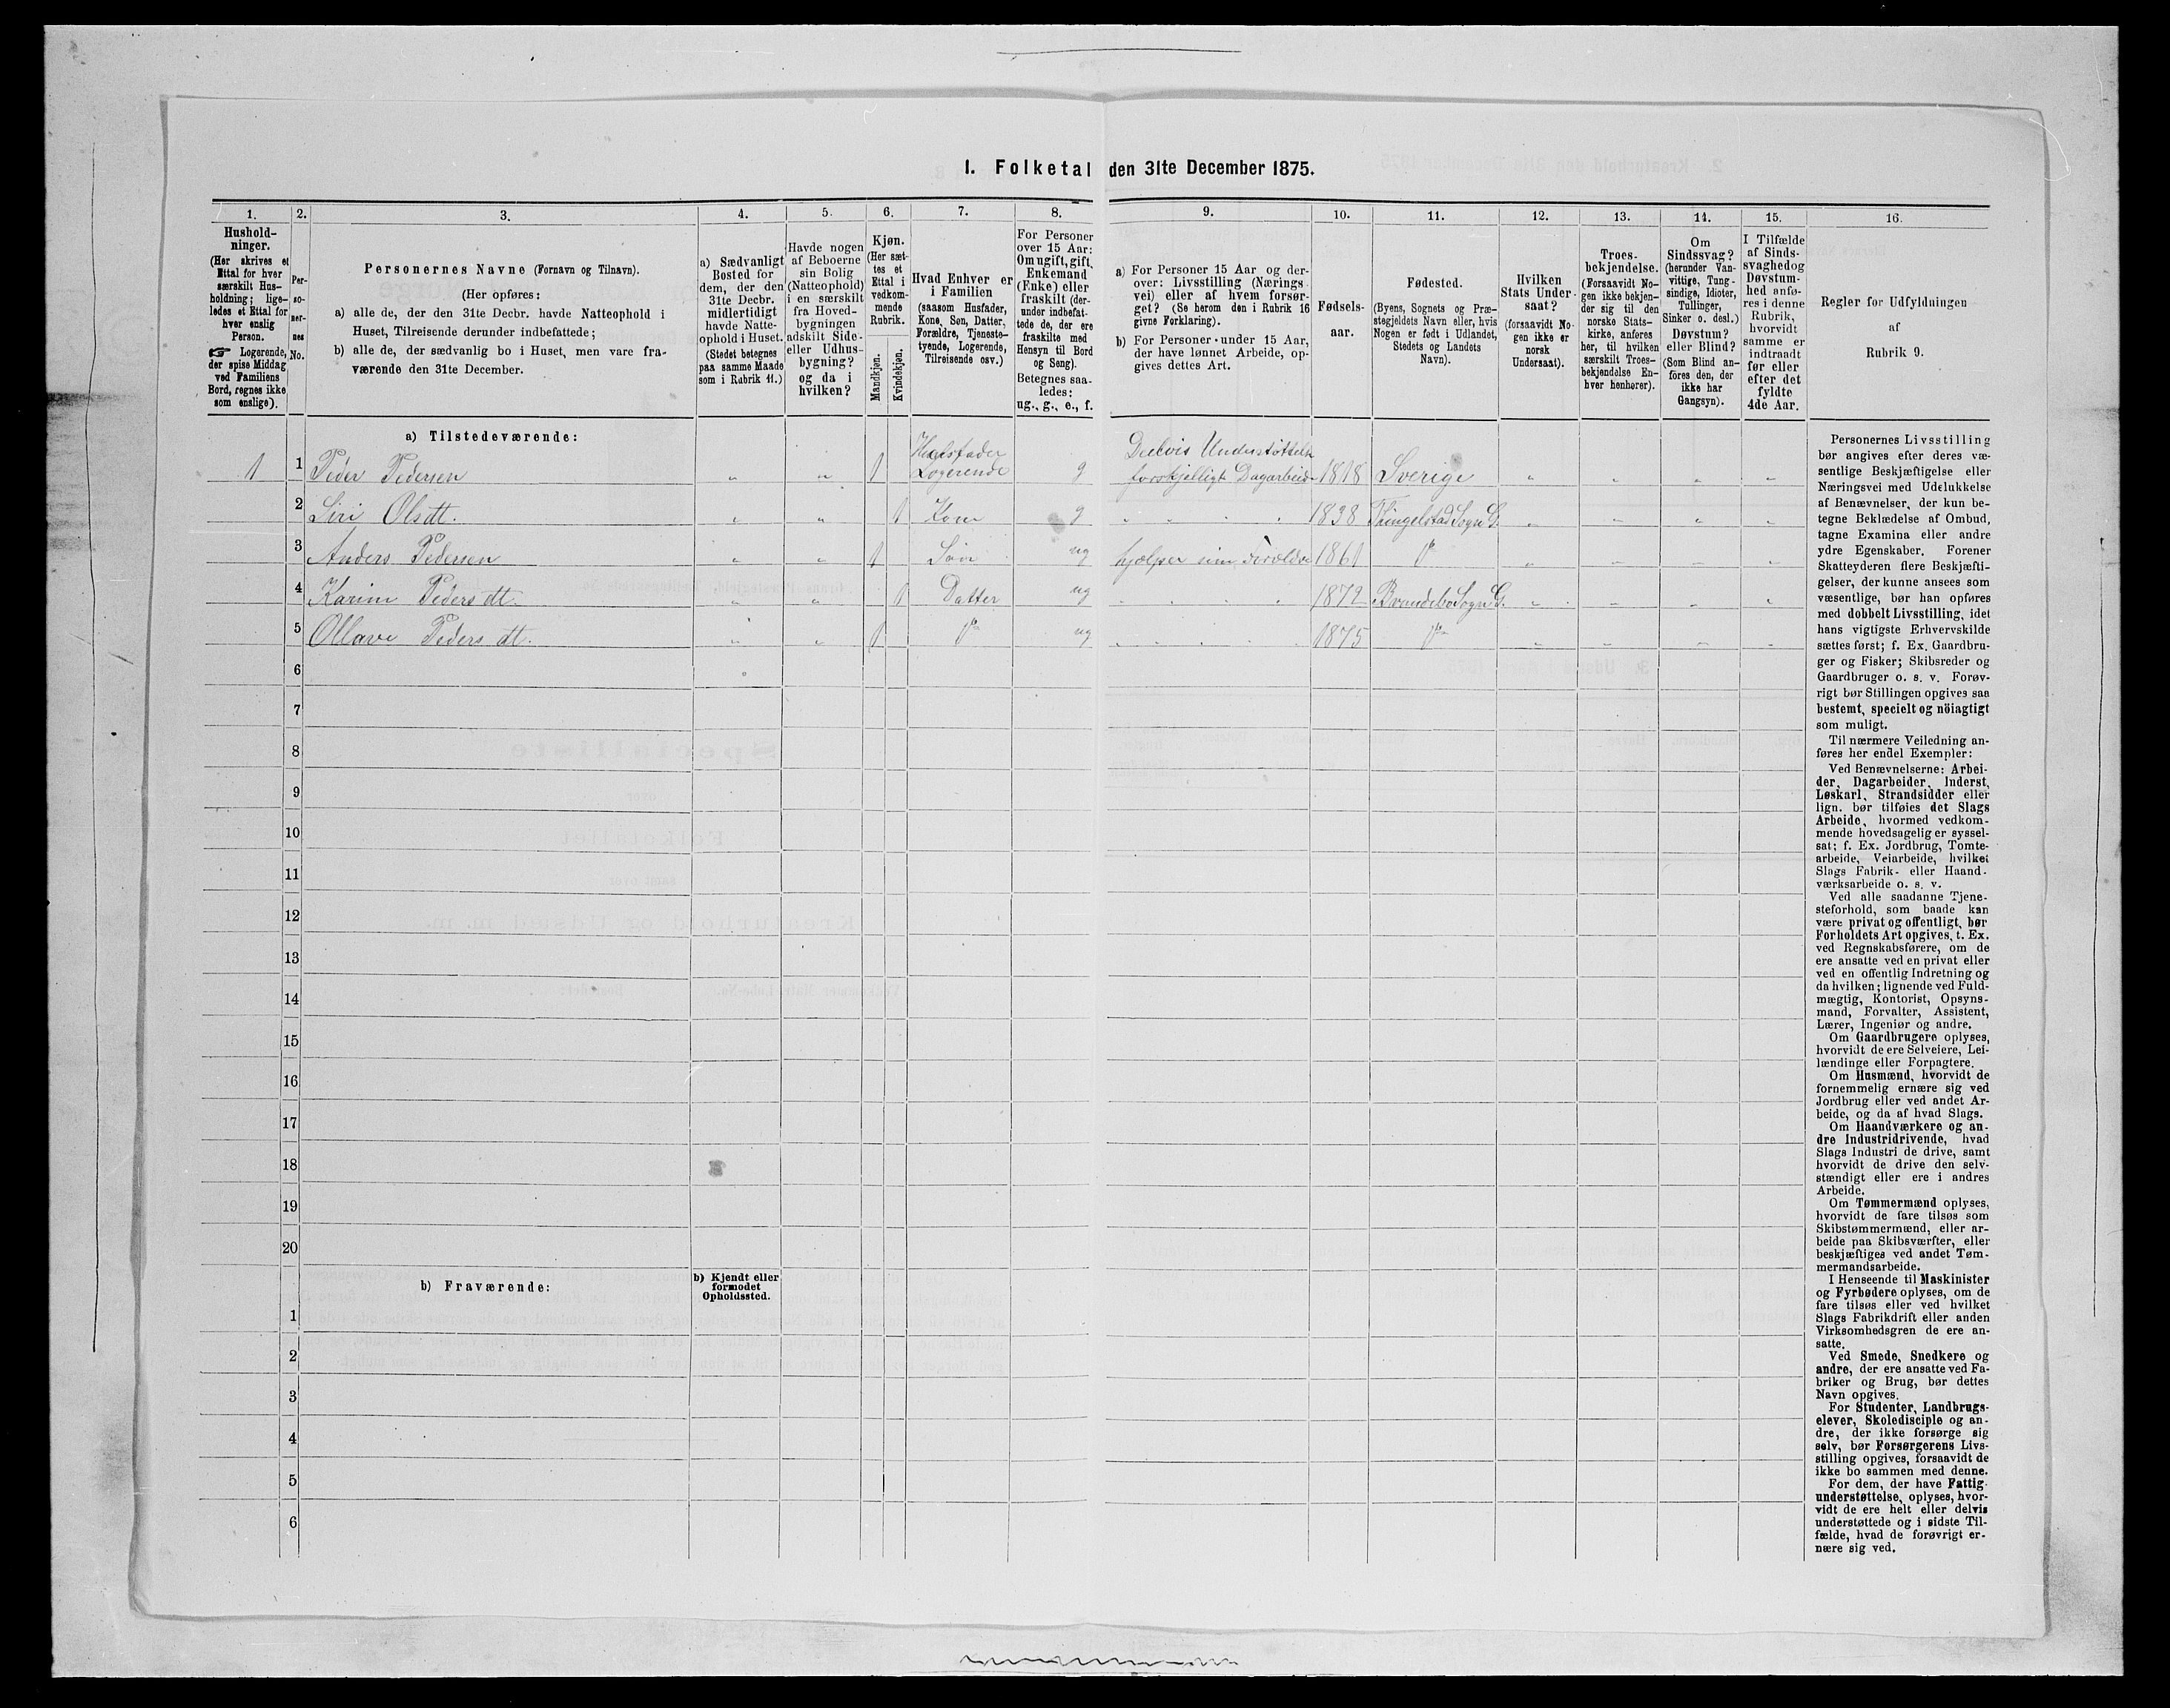 I. Folketal den 31te December 1875.
1. 2. 3. 4. 5. 6. 7. 8. 9. 10. 11. 12. 13. 14. 15. 16.
Hushold-
ninger.
(Her skrives et
Ettal for hver
særskilt Hus-
holdning; lige-
ledes et Ettal for
hver enslig
Person.
☞ Logerende,
der spise Middag
ved Familiens
Bord, regnes ikke
som enslige).
Per-
so-
ner-
nes
No.
Personernes Navne (Fornavn og Tilnavn).
(Her opføres:
a) alle de, der den 31te Decbr. havde Natteophold i
Huset, Tilreisende derunder indbefattede;
b) alle de, der sædvanlig bo i Huset, men vare fra-
værende den 31te December.
a) Sædvanligt
Bosted for
dem, der den
31te Decbr.
midlertidigt
havde Natte-
ophold i Huset.
(Stedet betegnes
paa samme Maade
som i Rubrik 11.)
Havde nogen
af Beboerne
sin Bolig
(Natteophold)
i en særskilt
fra Hoved-
bygningen
adskilt Side-
eller Udhus-
bygning?
og da i
hvilken?
Kjøn.
(Her sæt-
tes et
Ettal i
vedkom-
mende
Rubrik.
Mandkjøn.
Kvindekjøn.
Hvad Enhver er
i Familien
(saasom Husfader,
Kone, Søn, Datter,
Forældre, Tjeneste-
tyende, Logerende,
Tilreisende osv.)
For Personer
over 15 Aar:
Om ugift, gift,
Enkemand
(Enke) eller
fraskilt (der-
under indbefat-
tede de, der ere
fraskilte med
Hensyn til Bord
og Seng).
Betegnes saa-
ledes:
ug., g., e., f.
a) For Personer 15 Aar og der-
over: Livsstilling (Nærings-
vei) eller af hvem forsør-
get? (Se herom den i Rubrik 16
givne Forklaring).
b) For Personer under 15 Aar,
der have lønnet Arbeide, op-
gives dettes Art.
Fødsels-
aar.
Fødested.
(Byens, Sognets og Præ-
stegjeldets Navn eller, hvis
Nogen er født i Udlandet,
Stedets og Landets
Navn).
Hvilken
Stats Under-
saat?
(forsaavidt No-
gen ikke er
norsk
Undersaat).
Troes-
bekjendelse.
(Forsaavidt No-
gen ikke bekjen-
der sig til den
norske Stats-
kirke, anføres
her, til hvilken
særskilt Troes-
bekjendelse En-
hver henhører).
Om
Sindssvag?
(herunder Van-
vittige, Tung-
sindige, Idioter,
Tullinger,
Sinker o. desl.)
Døvstum?
eller Blind?
(Som Blind an-
føres den, der
ikke har
Gangsyn).
I Tilfælde
af Sinds-
svaghed og
Døvstum-
hed anfø-
res i denne
Rubrik,
hvorvidt
samme er
indtraadt
før eller
efter det
fyldte
4de Aar.
Regler for Udfyldningen
af
Rubrik 9.
a) Tilstedeværende:
1 1 Peder Pedersen " " 1 Husfader Logerende g Deelvis Understøttelse forskjelligt Dagarbeide 1818 Sverige " " " "
2 Siri Olsdt. " " 1 Kone g " " " " 1838 Thingelstad Sogn G. " " " "
3 Anders Pedersen " " 1 Søn ug hjælper sine Forældre 1861 Do " " " "
4 Karine Pedersdt. " " 1 Datter ug " " " " 1872 Brandebo Sogn G. " " " "
5 Ollave Pedersdt. " " 1 Do ug " " " " 1875 Do " " " "
6 "
7
8
9
10
11
12
13
14
15
16
17
18
19
20
b) Fraværende:
b) Kjendt eller
formodet
Opholdssted.
1
2
3
4
5
6
Personernes Livsstilling
bør angives efter deres væ-
sentlige Beskjæftigelse eller
Næringsvei med Udelukkelse
af Benævnelser, der kun be-
tegne Beklædelse af Ombud,
tagne Examina eller andre
ydre Egenskaber. Forener
Skatteyderen flere Beskjæfti-
gelser, der kunne ansees som
væsentlige, bør han opføres
med dobbelt Livsstilling, idet
hans vigtigste Erhvervskilde
sættes først; f. Ex. Gaardbru-
ger og Fisker; Skibsreder og
Gaardbruger o. s. v. Forøv-
rigt bør Stillingen opgives saa
bestemt, specielt og nöiagtigt
som muligt.
Til nærmere Veiledning an-
føres her endel Exempler:
Ved Benævnelserne: Arbei-
der, Dagarbeider, Inderst,
Løskarl, Strandsidder eller
lign. bør tilføies det Slags
Arbeide, hvormed vedkom-
mende hovedsagelig er syssel-
sat; f. Ex. Jordbrug, Tomte-
arbeide, Veiarbeide, hvilket
Slags Fabrik- eller Haand-
værksarbeide o. s. v.
Ved alle saadanne Tjene-
steforhold, som baade kan
være privat og offentligt, bør
Forholdets Art opgives, t. Ex.
ved Regnskabsførere, om de
ere ansatte ved en privat eller
ved en offentlig Indretning og
da hvilken; lignende ved Fuld-
mægtig, Kontorist, Opsyns-
mand, Forvalter, Assistent,
Lærer, Ingeniør og andre.
Om Gaardbrugere oplyses,
hvorvidt de ere Selveiere, Lei-
lændinge eller Forpagtere.
Om Husmænd, hvorvidt de
fornemmelig ernære sig ved
Jordbrug eller ved andet Ar-
beide, og da af hvad Slags.
Om Haandværkere og an-
dre Industridrivende, hvad
Slags Industri de drive, samt
hvorvidt de drive den selv-
stændigt eller ere i andres
Arbeide.
Om Tømmermænd oplyses,
hvorvidt de fare tilsøs som
Skibstømmermænd, eller ar-
beide paa Skibsværfter, eller
beskjæftiges ved andet Tøm-
mermandsarbeide.
I Henseende til Maskinister
og Fyrbødere oplyses, om de
fare tilsøs eller ved hvilket
Slags Fabrikdrift eller anden
Virksomhedsgren de ere an-
satte.
Ved Smede, Snedkere og
andre, der ere ansatte ved Fa-
briker og Brug, bør dettes
Navn opgives.
For Studenter, Landbrugs-
elever, Skoledisciple og an-
dre, der ikke forsørge sig
selv, bør Forsørgerens Livs-
stilling opgives, forsaavidt de
ikke bo sammen med denne.
For dem, der have Fattig-
understøttelse, oplyses, hvor-
vidt de ere helt eller delvis
understøttede og i sidste Til-
fælde, hvad de forøvrigt er-
nære sig ved.